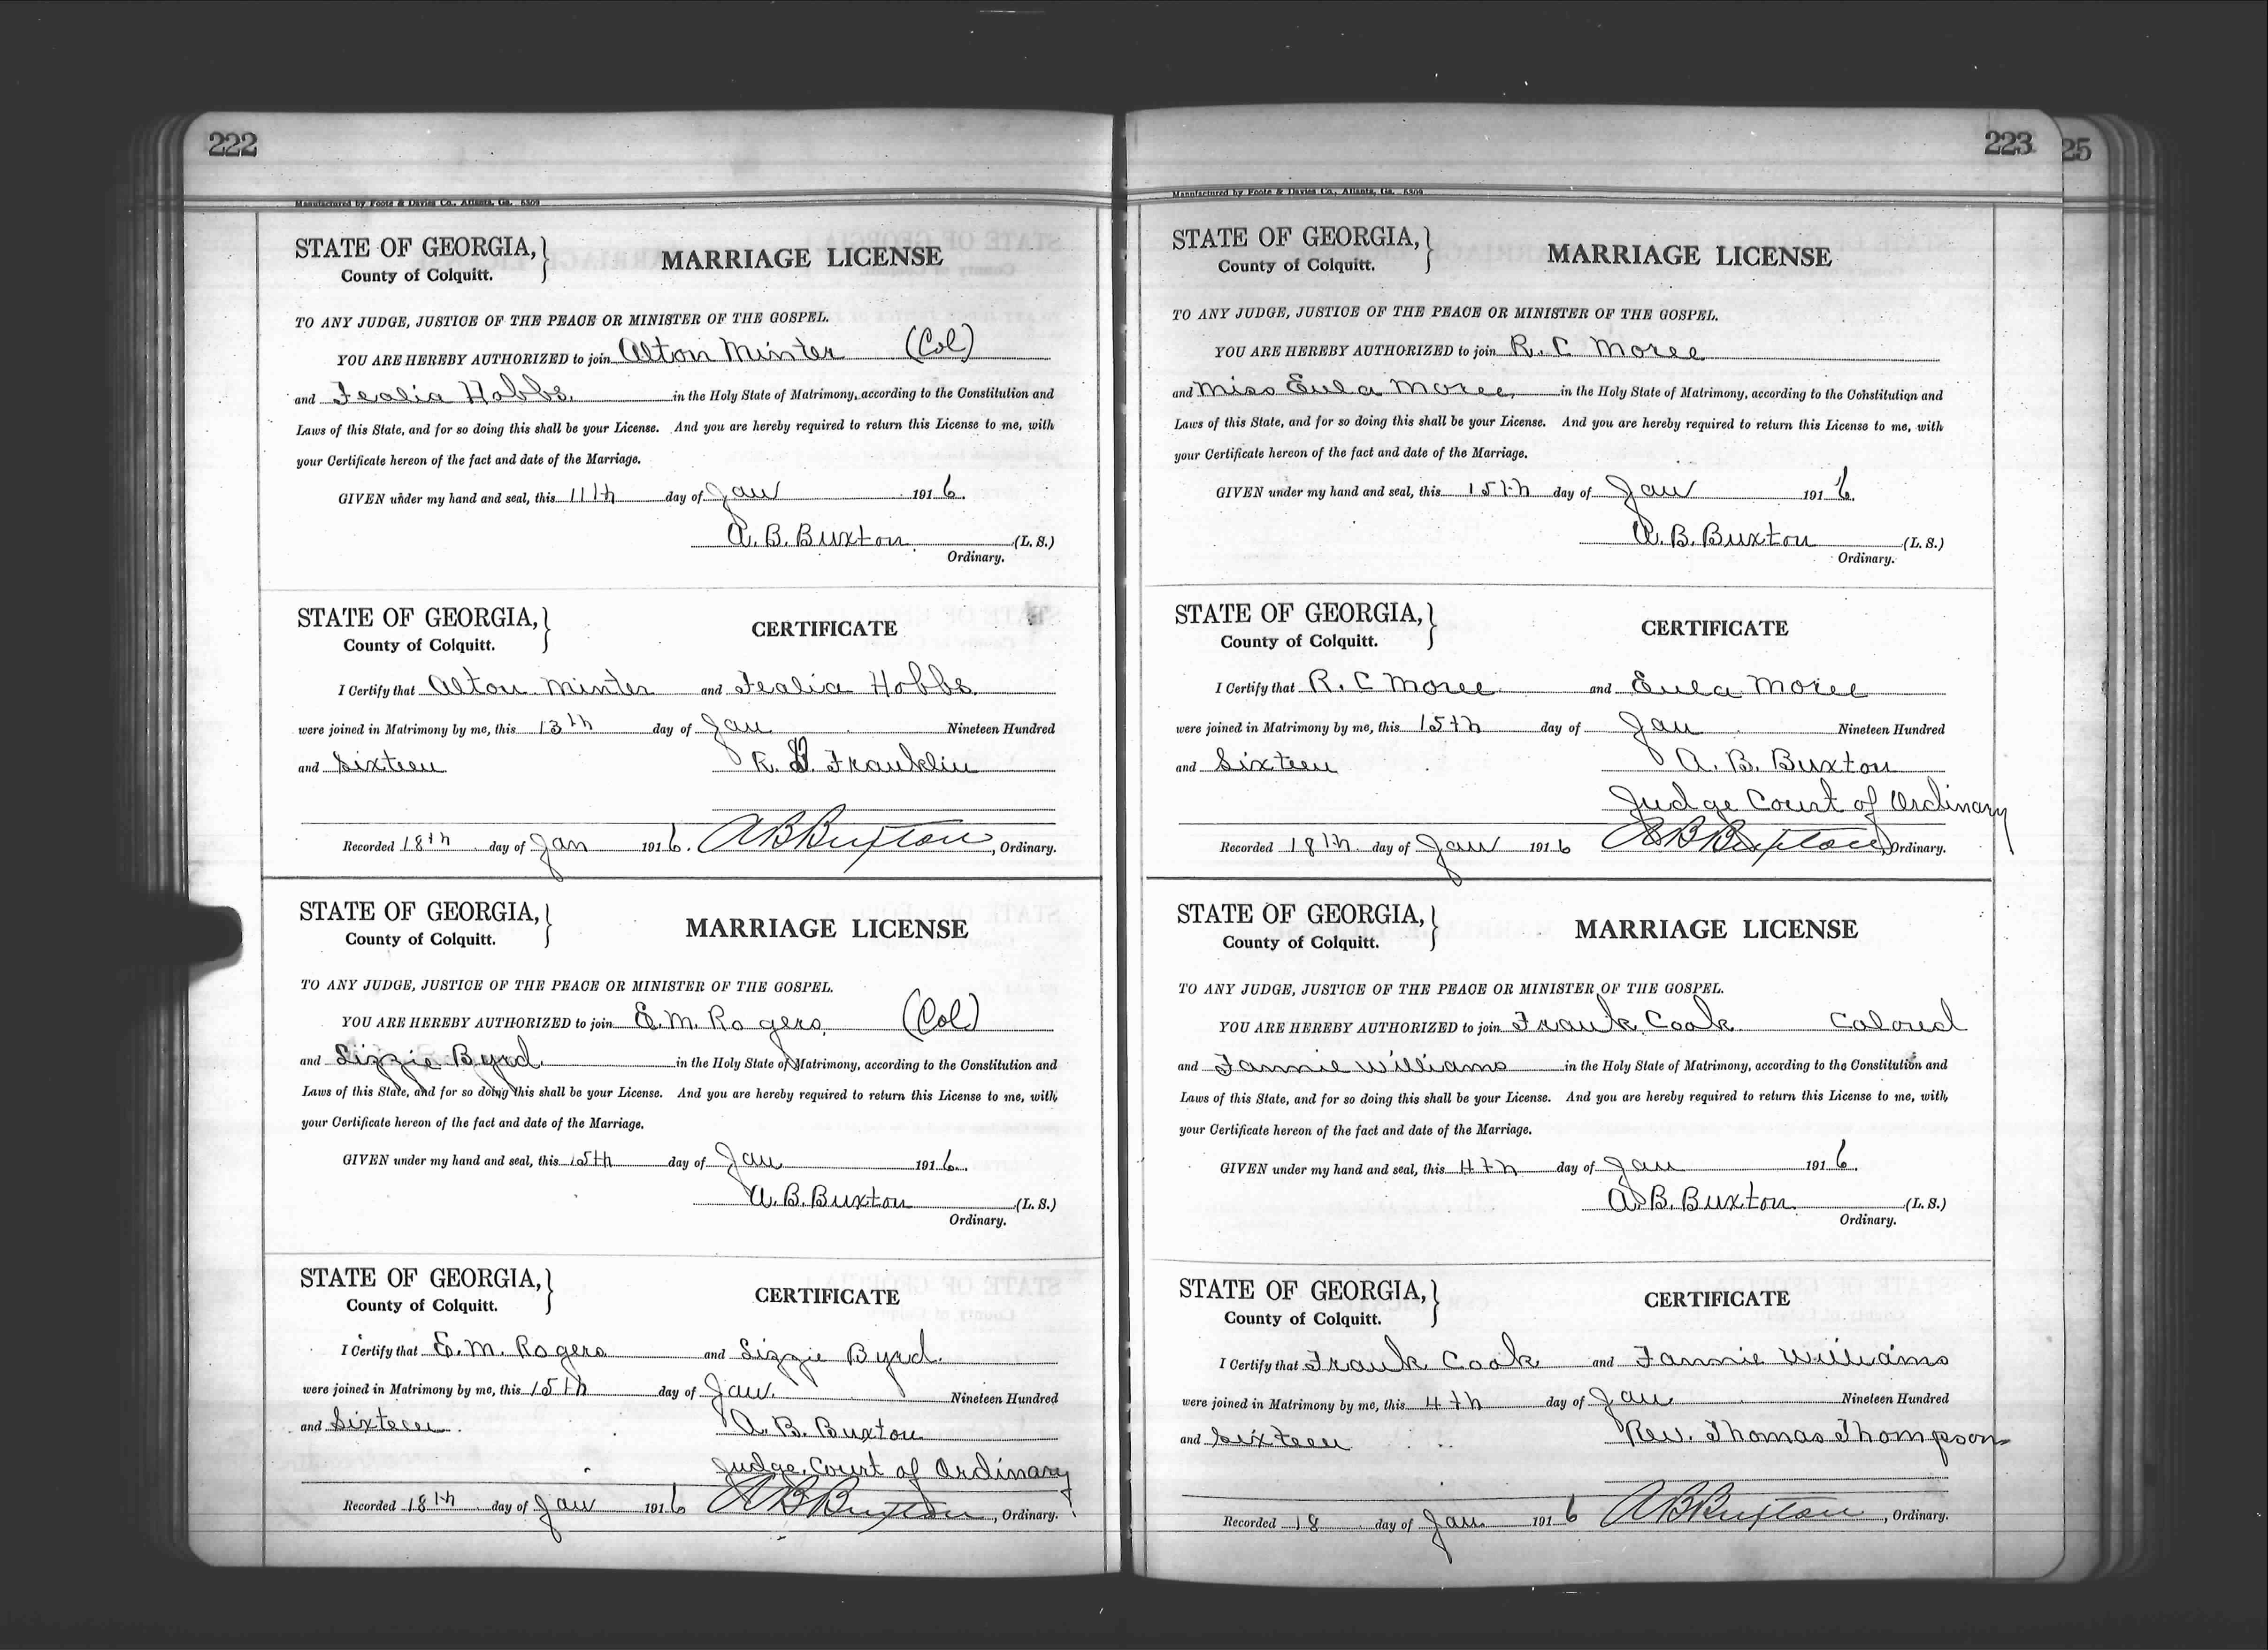 222
Manufactured by Foote & Davies Co., Atlanta, Ga. 5309
STATE OF GEORGIA,
County of Colquitt.
MARRIAGE LICENSE
TO ANY JUDGE, JUSTICE OF THE PEACE OR MINISTER OF THE GOSPEL.
YOU ARE HEREBY AUTHORIZED to join Alton Minter (Col)
and Fealia Hobbs. in the Holy State of Matrimony, according to the Constitution and
Laws of this State, and for so doing this shall be your License. And you are hereby required to return this License to me, with
your Certificate hereon of the fact and date of the Marriage.
GIVEN under my hand and seal, this 11th day of Jan 1916.
A. B. Buxton. (L. S.)
Ordinary.
STATE OF GEORGIA,
County of Colquitt.
CERTIFICATE
I Certify that Alton Minter and Fealia Hobbs.
were joined in Matrimony by me, this 13th day of Jan Nineteen Hundred
and Sixteen Franklin
Recorded 18th day of Jan 1916. A B Buxton, Ordinary.
STATE OF GEORGIA,
County of Colquitt.
MARRIAGE LICENSE
TO ANY JUDGE, JUSTICE OF THE PEACE OR MINISTER OF THE GOSPEL.
YOU ARE HEREBY AUTHORIZED to join E. M. Rogers. (Col)
and Lizzie Byrd in the Holy State of Matrimony, according to the Constitution and
Laws of this State, and for so doing this shall be your License. And you are hereby required to return this License to me, with
your Certificate hereon of the fact and date of the Marriage.
GIVEN under my hand and seal, this 15th day of Jan 1916.
A. B. Buxton (L. S.)
Ordinary.
STATE OF GEORGIA,
County of Colquitt.
CERTIFICATE
I Certify that E. M. Rogers and Lizzie Byrd.
were joined in Matrimony by me, this 15th day of Jan. Nineteen Hundred
and Sixteen A. B. Buxton
Judge Court of Ordinary
Recorded 18th day of Jan 1916 A B Buxton, Ordinary.
223
25
Manufactured by Foote & Davies Co., Atlanta, Ga. 5309
STATE OF GEORGIA,
County of Colquitt.
MARRIAGE LICENSE
TO ANY JUDGE, JUSTICE OF THE PEACE OR MINISTER OF THE GOSPEL.
YOU ARE HEREBY AUTHORIZED to join R. C Moree
and Miss Eula Moree, in the Holy State of Matrimony, according to the Constitution and
Laws of this State, and for so doing this shall be your License. And you are hereby required to return this License to me, with
your Certificate hereon of the fact and date of the Marriage.
GIVEN under my hand and seal, this 15th day of Jan 1916.
A. B. Buxton (L. S.)
Ordinary.
STATE OF GEORGIA,
County of Colquitt.
CERTIFICATE
I Certify that R. C Moree and Eula Moree
were joined in Matrimony by me, this 15th day of Jan Nineteen Hundred
and Sixteen A. B. Buxton
Judge Court of Ordinary
Recorded 18th. day of Jan 1916 A B Buxton, Ordinary.
STATE OF GEORGIA,
County of Colquitt.
MARRIAGE LICENSE
TO ANY JUDGE, JUSTICE OF THE PEACE OR MINISTER OF THE GOSPEL.
YOU ARE HEREBY AUTHORIZED to join Frank Cook Colored
and Fannie Williams in the Holy State of Matrimony, according to the Constitution and
Laws of this State, and for so doing this shall be your License. And you are hereby required to return this License to me, with
your Certificate hereon of the fact and date of the Marriage.
GIVEN under my hand and seal, this 4th day of Jan 1916.
A. B. Buxton (L. S.)
Ordinary.
STATE OF GEORGIA,
County of Colquitt.
CERTIFICATE
I Certify that Frank Cook and Fannie Williams
were joined in Matrimony by me, this 4th day of Jan Nineteen Hundred
and Sixteen Rev. Thomas Thompson
Recorded 18 day of Jan 1916 A B Buxton, Ordinary.